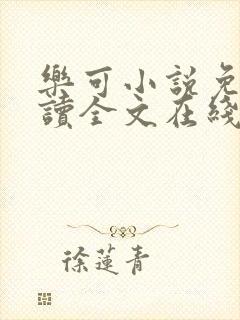 樂可小說免
讀全文在綫
徐蓮青